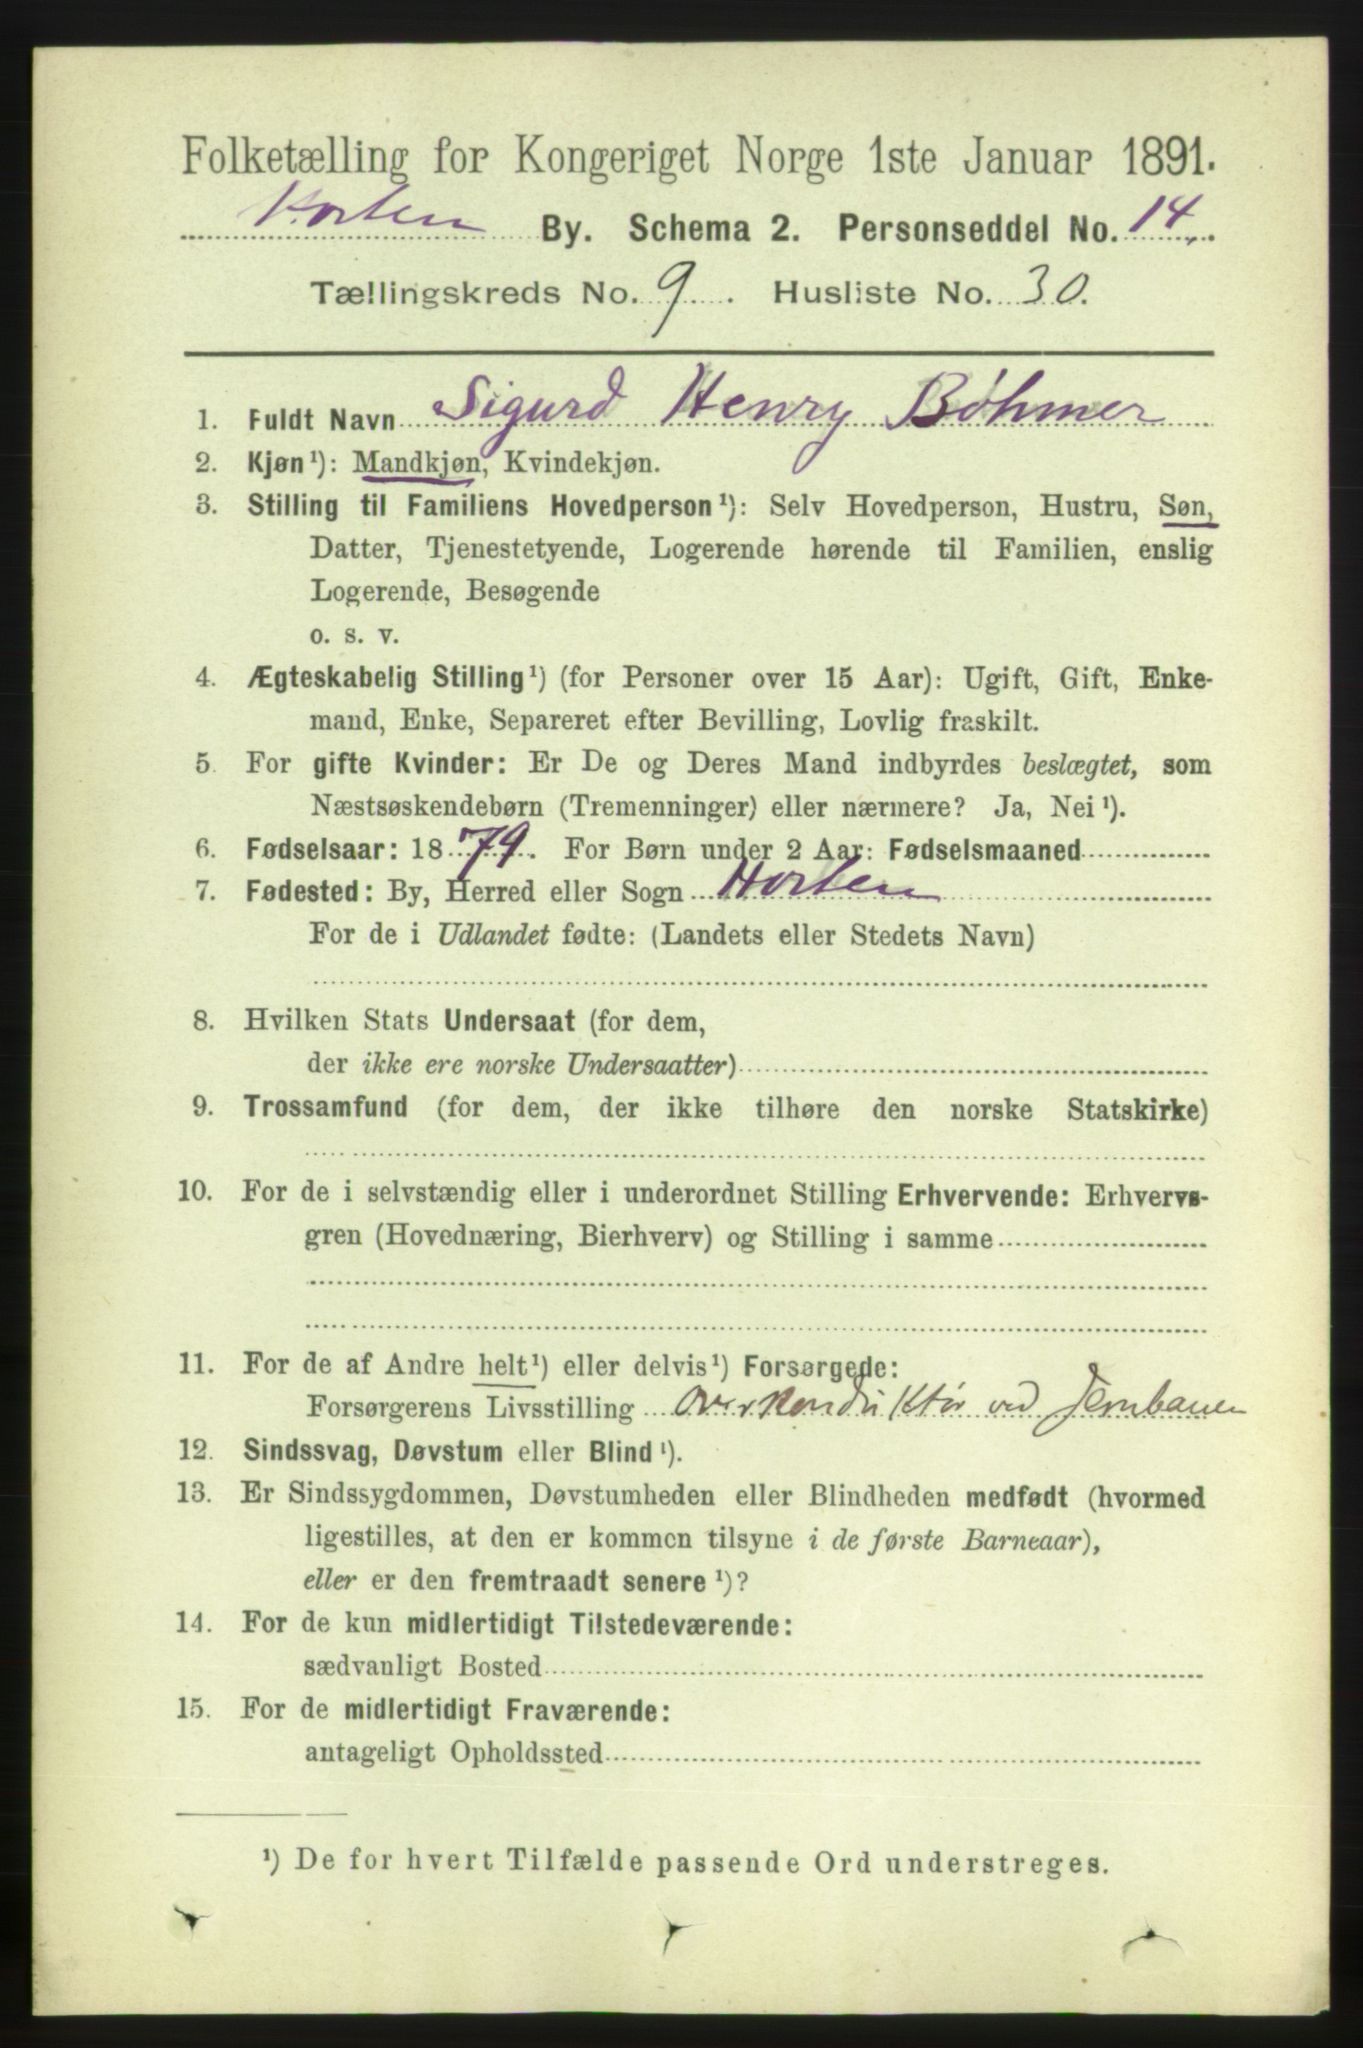 Folketælling for Kongeriget Norge 1ste Januar 1891.
Horten By. Schema 2. Personseddel No. 14.
Tællingskreds No. 9. Husliste No. 30.
1. Fuldt Navn Sigurd Henry Bøhmer
2. Kjøn¹): Mandkjøn, Kvindekjøn.
3. Stilling til Familiens Hovedperson¹): Selv Hovedperson, Hustru, Søn,
Datter, Tjenestetyende, Logerende hørende til Familien, enslig
Logerende, Besøgende
o. s. v.
4. Ægteskabelig Stilling¹) (for Personer over 15 Aar): Ugift, Gift, Enke-
mand, Enke, Separeret efter Bevilling, Lovlig fraskilt.
5. For gifte Kvinder: Er De og Deres Mand indbyrdes beslægtet, som
Næstsøskendebørn (Tremenninger) eller nærmere? Ja, Nei¹).
6. Fødselsaar: 1879. For Børn under 2 Aar: Fødselsmaaned
7. Fødested: By, Herred eller Sogn Horten
For de i Udlandet fødte: (Landets eller Stedets Navn)
8. Hvilken Stats Undersaat (for dem,
der ikke ere norske Undersaatter)
9. Trossamfund (for dem, der ikke tilhøre den norske Statskirke)
10. For de i selvstændig eller i underordnet Stilling Erhvervende: Erhvervs-
gren (Hovednæring, Bierhverv) og Stilling i samme
11. For de af Andre helt¹) eller delvis¹) Forsørgede:
Forsørgerens Livsstilling Overkonduktør ved Jernbanen
12. Sindssvag, Døvstum eller Blind¹).
13. Er Sindssygdommen, Døvstumheden eller Blindheden medfødt (hvormed
ligestilles, at den er kommen tilsyne i de første Barneaar),
eller er den fremtraadt senere¹)?
14. For de kun midlertidigt Tilstedeværende:
sædvanligt Bosted
15. For de midlertidigt Fraværende:
antageligt Opholdssted
¹) De for hvert Tilfælde passende Ord understreges.